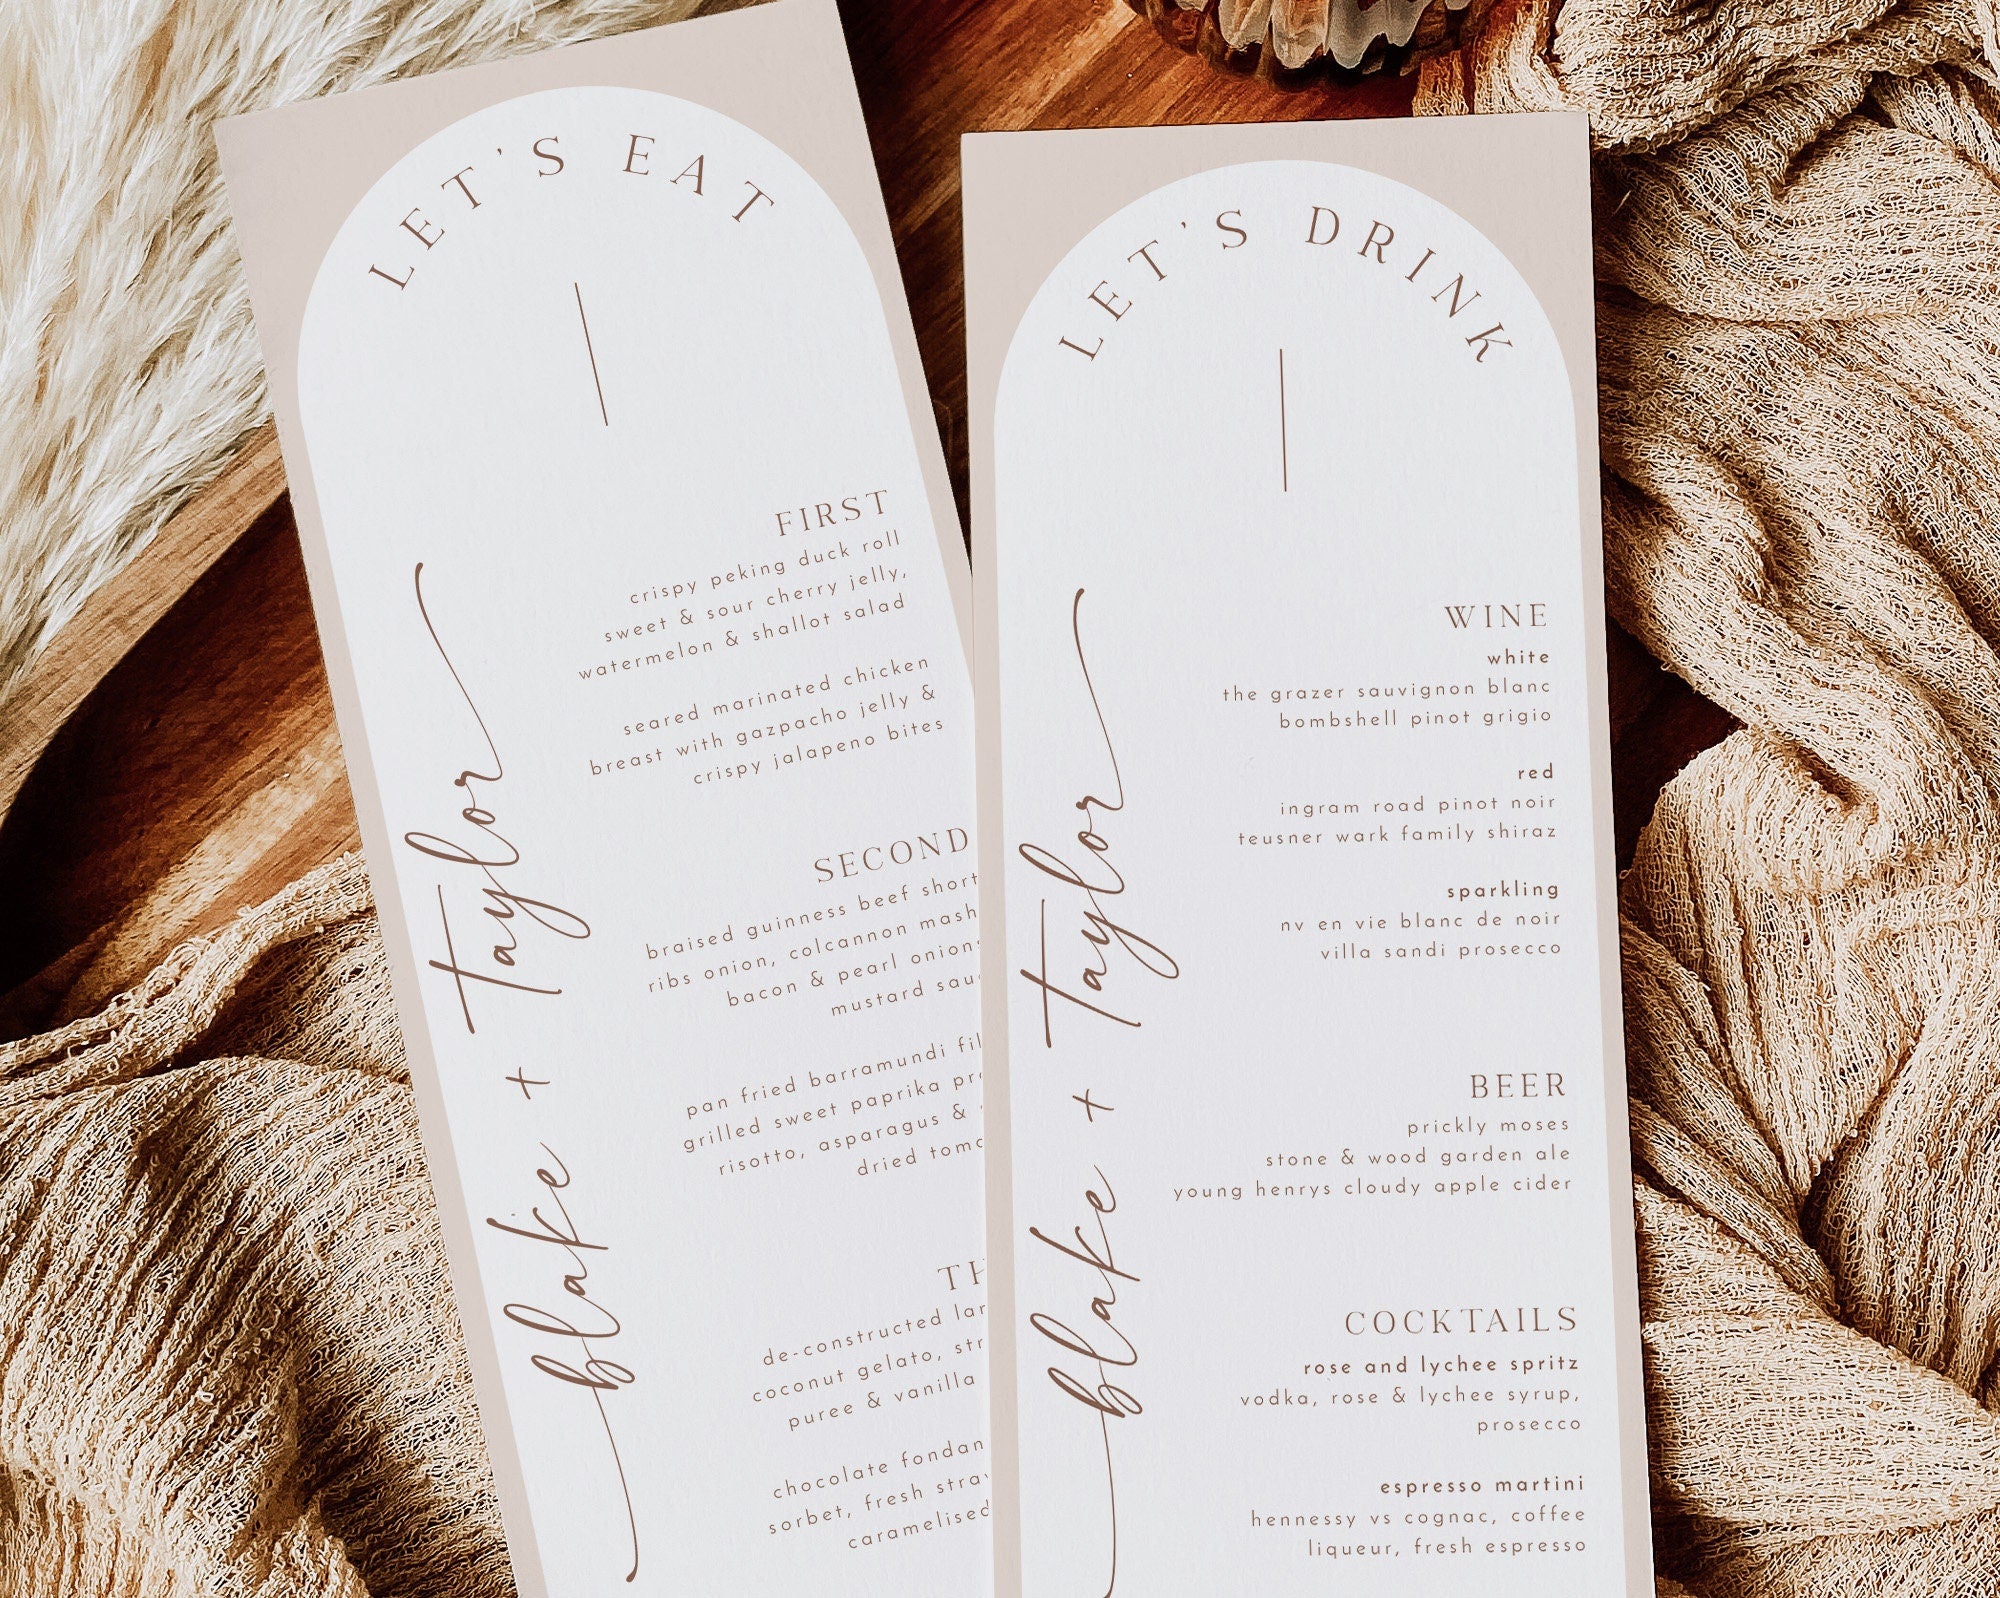 LET'S EAT
blake + taylor
FIRST
crispy peking duck roll
sweet & sour cherry jelly,
watermelon & shallot salad
seared marinated chicken
breast with gazpacho jelly &
crispy jalapeno bites
SECOND
braised guinness beef short
ribs onion, colcannon mash
bacon & pearl onions
mustard
pan fried barramundi
grilled sweet paprika
risotto, asparagus &
dried
de-constructed
coconut gelato,
puree & vanilla
chocolate
sorbet, fresh
caramelised
LET'S DRINK
blake + taylor
WINE
white
the grazer sauvignon blanc
bombshell pinot grigio
red
ingram road pinot noir
teusner wark family shiraz
sparkling
nv en vie blanc de noir
villa sandi prosecco
BEER
prickly moses
stone & wood garden ale
young henrys cloudy apple cider
COCKTAILS
rose and lychee spritz
vodka, rose & lychee syrup,
prosecco
espresso martini
hennessy vs cognac, coffee
liqueur, fresh espresso